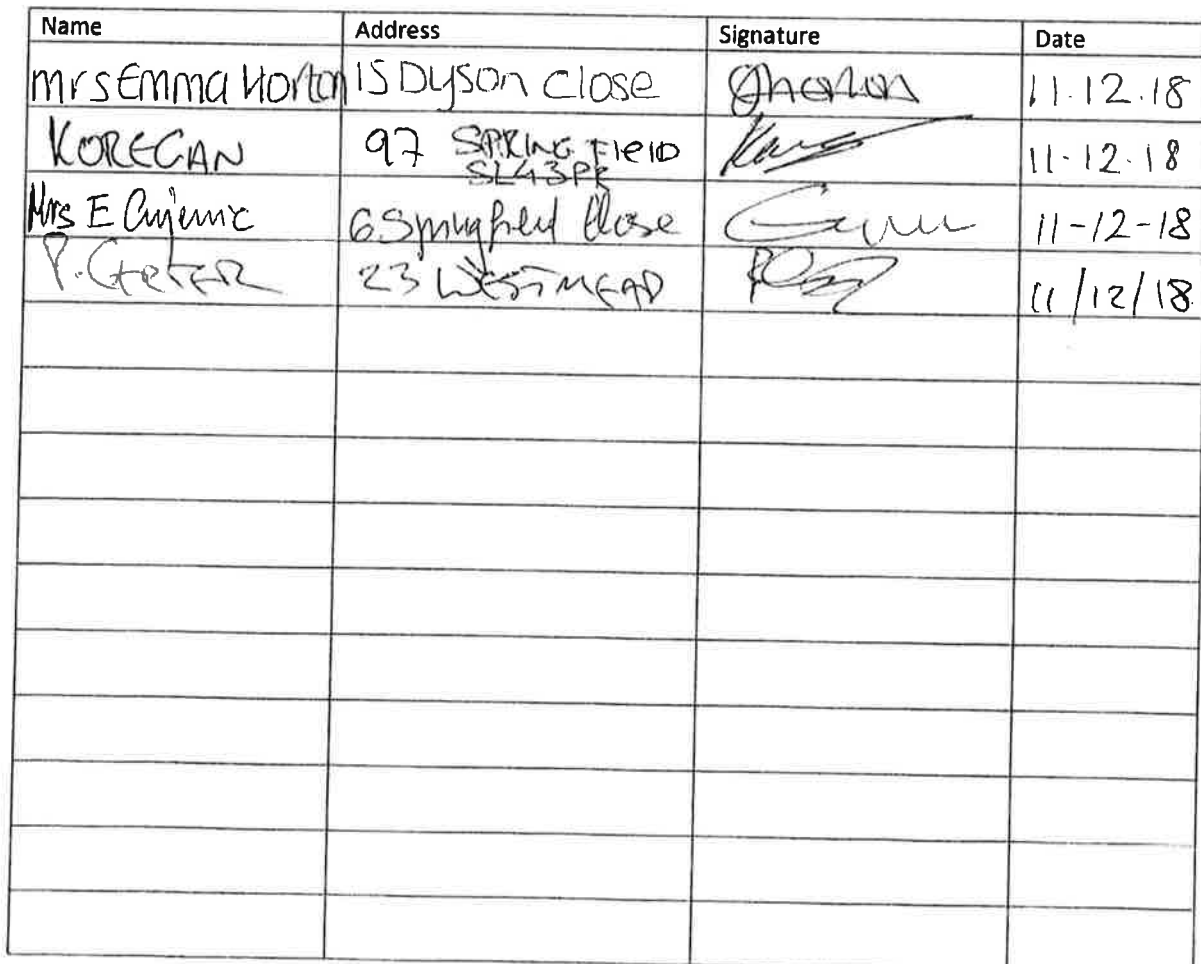 Name Address Signature Date
Mrs Emma Horton 15 Dyson Close 11.12.18
KOREGAN 97 SPRING FIELD 11-12-18
SL43PR
Mrs E 6 Springfield Close 11-12-18
P. CARTER 23 WESTMEAD 11/12/18